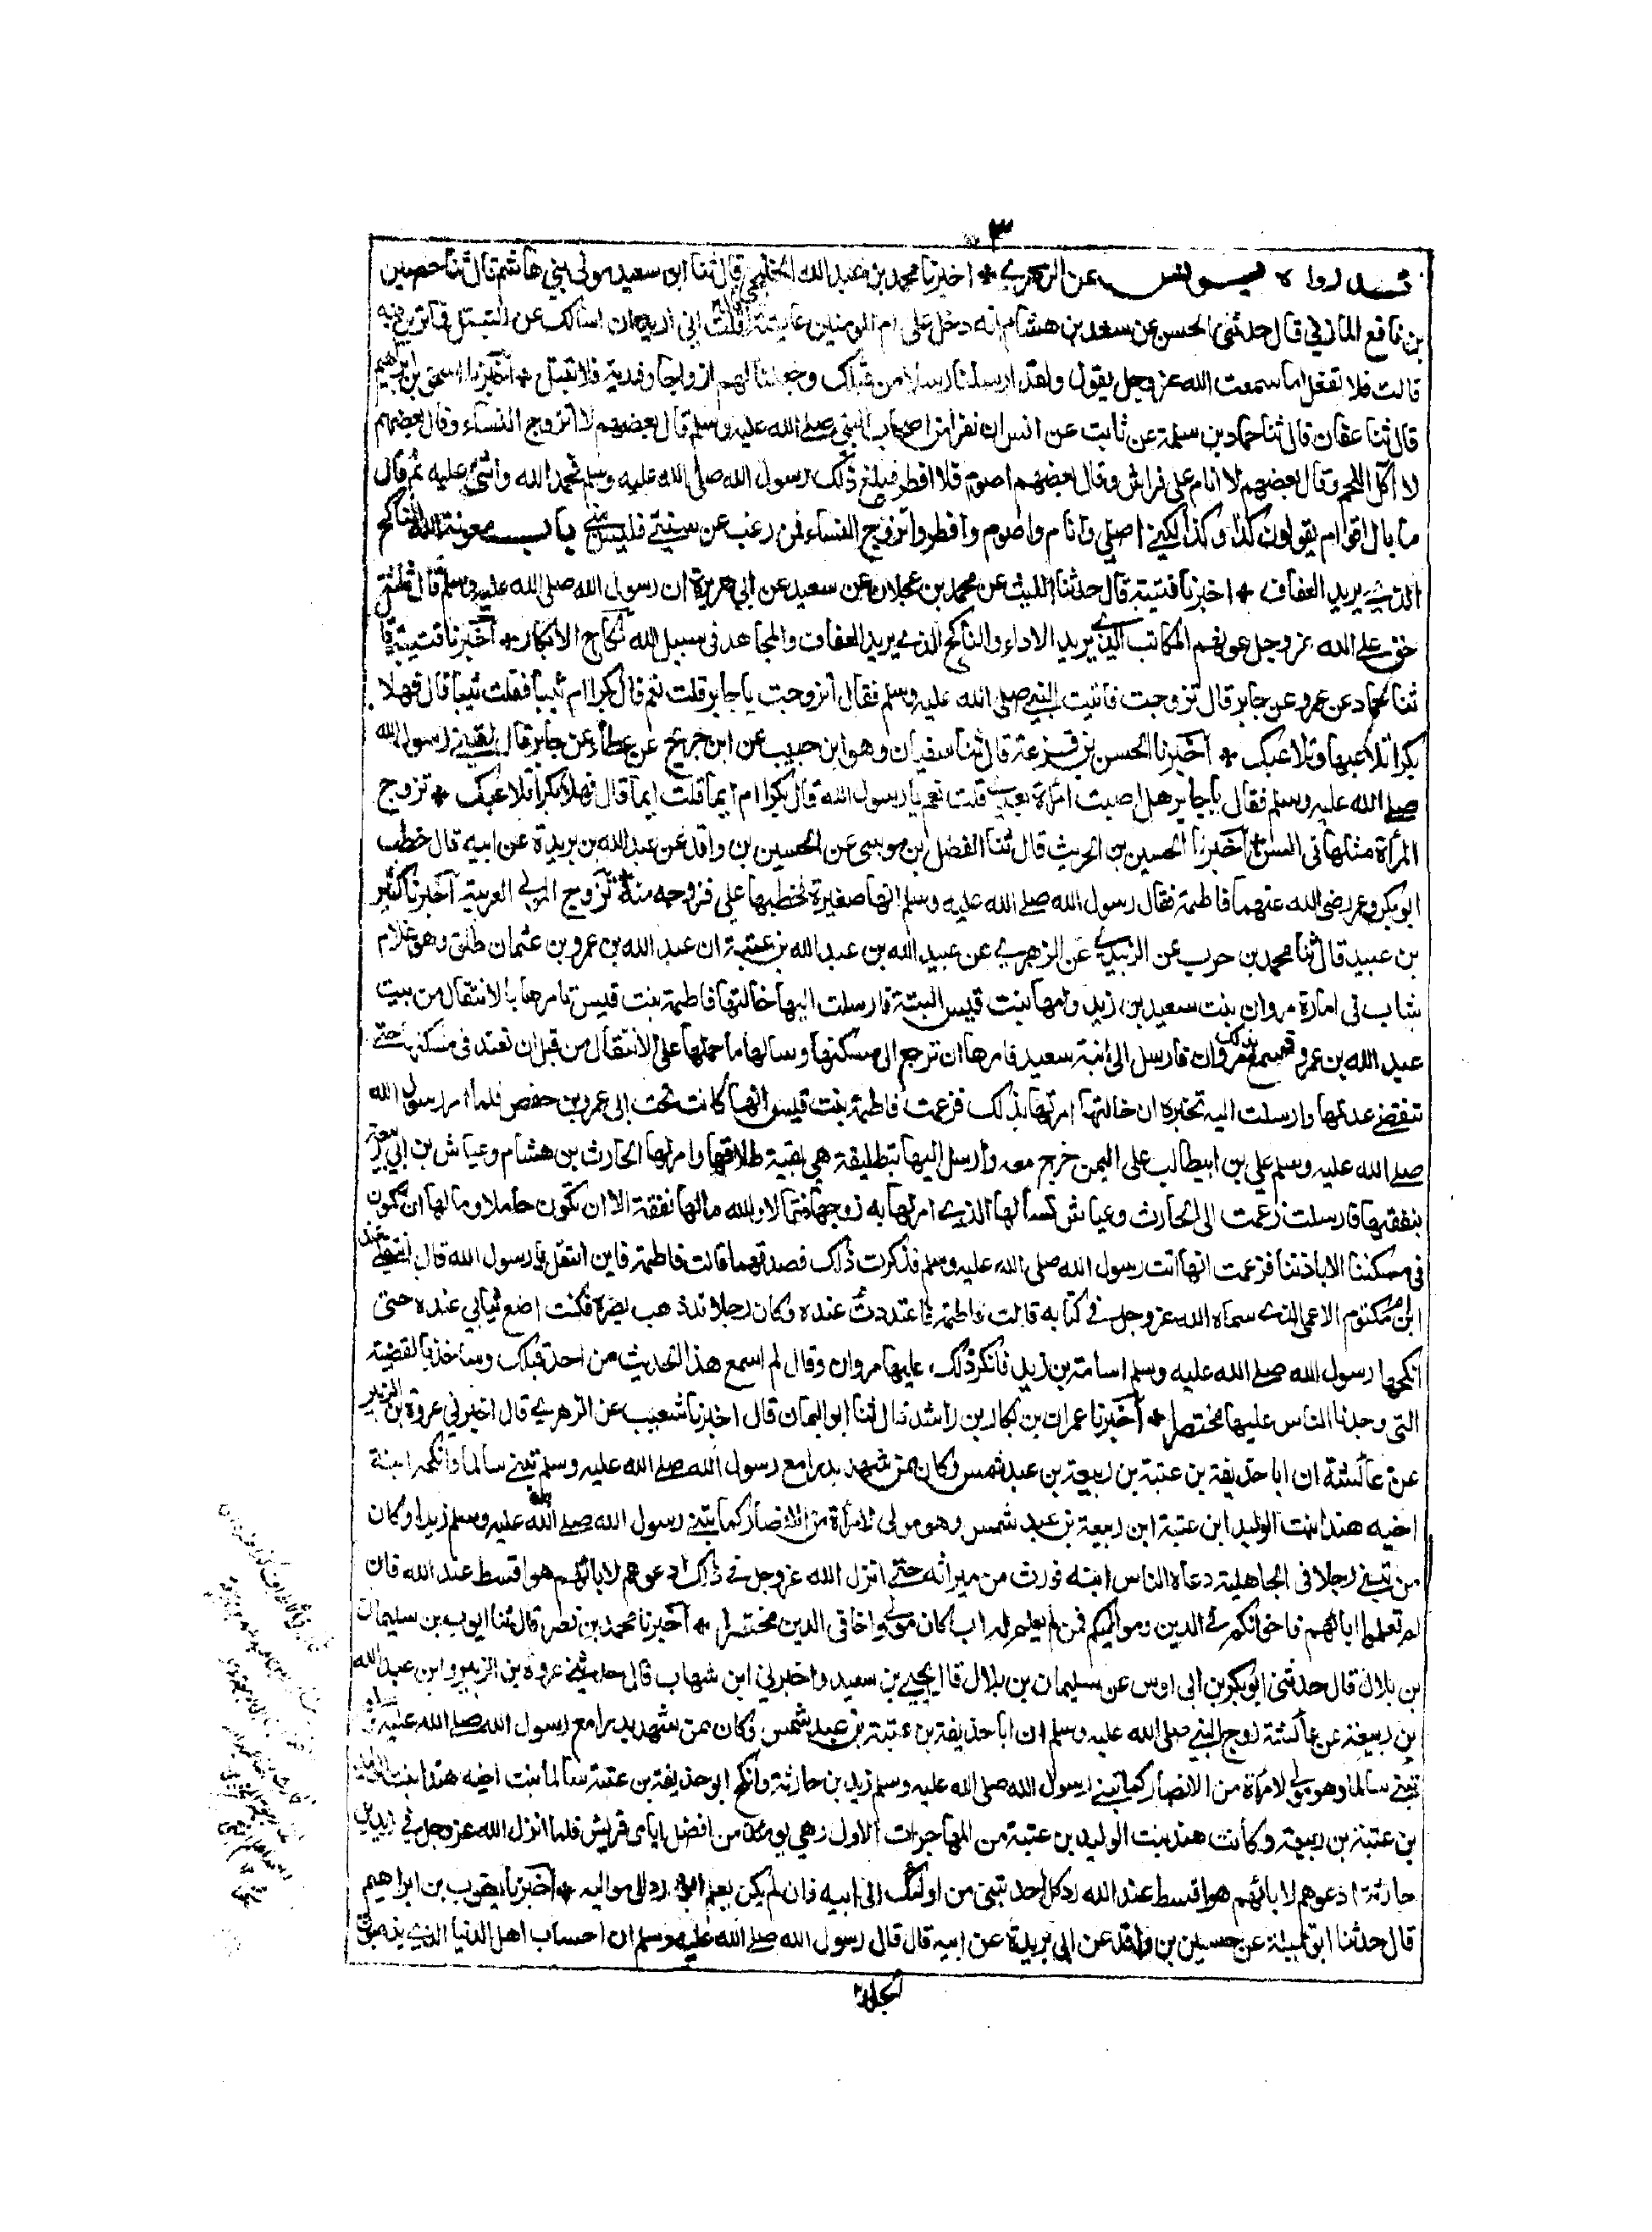 ٣
قد رواه يونس عن الزهري * اخبرنا محمد بن عبد الله الخلنجي قال ثنا ابو سعيد مولى بني هاشم قال ثنا حصين
بن نافع المازني قال حدثني الحسن عن سعد بن هشام انه دخل على ام المومنين عايشة قال قلت اني اريد ان اسالك عن التبتل فما ترين فيه
قالت فلا تفعل اما سمعت الله عز وجل يقول ولقد ارسلنا رسلا من قبلك وجعلنا لهم ازواجا وذرية فلا تبتل * اخبرنا اسحق بن ابراهيم
قال ثنا عفان قال ثنا حماد بن سلمة عن ثابت عن انس ان نفرا من اصحاب النبي صلى الله عليه وسلم قال بعضهم لا اتزوج النساء وقال بعضهم
لا آكل اللحم وقال بعضهم لا انام على فراش وقال بعضهم اصوم فلا افطر فبلغ ذلك رسول الله صلى الله عليه وسلم فحمد الله واثنى عليه ثم قال
ما بال اقوام يقولون كذا وكذا لكني اصلي وانام واصوم وافطر واتزوج النساء فمن رغب عن سنتي فليس مني باب معونة الله الناكح
الذي يريد العفاف * اخبرنا قتيبة قال حدثنا الليث عن محمد بن عجلان عن سعيد عن ابي هريرة ان رسول الله صلى الله عليه وسلم قال ثلثة
حق على الله عز وجل عونهم المكاتب الذي يريد الاداء والناكح الذي يريد العفاف والمجاهد في سبيل الله نكاح الابكار * اخبرنا قتيبة قال
ثنا حماد عن عمرو عن جابر قال تزوجت فاتيت النبي صلى الله عليه وسلم فقال اتزوجت يا جابر قلت نعم قال بكرا ام ثيبا فقلت ثيبا قال فهلا
بكرا تلاعبها وتلاعبك * اخبرنا الحسن بن قزعة قال ثنا سفيان وهو ابن حبيب عن ابن جريج عن عطاء عن جابر قال لقيني رسول الله
صلى الله عليه وسلم فقال يا جابر هل اصبت امراة بعدي قلت نعم يا رسول الله قال بكرا ام ايما قلت ايما قال فهلا بكرا تلاعبك * تزوج
المرأة مثلها في السن * اخبرنا الحسين بن الحريث قال ثنا الفضل بن موسى عن الحسين بن واقد عن عبد الله بن بريدة عن ابيه قال خطب
ابو بكر وعمر رضي الله عنهما فاطمة فقال رسول الله صلى الله عليه وسلم انها صغيرة فخطبها علي فزوجه منه * تزوج المولى العربية اخبرنا كثير
بن عبيد قال ثنا محمد بن حرب عن الزبيدي عن الزهري عن عبيد الله بن عبد الله بن عتبة ان عبد الله بن عمرو بن عثمان طلق وهو غلام
شاب في امارة مروان بنت سعيد بن زيد وامها بنت قيس البتة فارسلت اليها خالتها فاطمة بنت قيس تامرها بالانتقال من بيت
عبد الله بن عمرو فسمع بذلك مروان فارسل الى ابنة سعيد فامرها ان ترجع الى مسكنها وسالها ما حملها على الانتقال من قبل ان تعتد في مسكنها حتى
تنقضي عدتها وارسلت اليه تخبره ان خالتها امرتها بذلك فزعمت فاطمة بنت قيس انها كانت تحت ابي عمرو بن حفص فلما امر رسول الله
صلى الله عليه وسلم علي بن ابيطالب على اليمن خرج معه وارسل اليها بتطليقة هي بقية طلاقها وامر لها الحارث بن هشام وعياش بن ابي ربيعة
بنفقتها فارسلت زعمت الى الحارث وعياش تسالها الذي امر لها به زوجها فقالا والله ما لها نفقة الا ان تكون حاملا وما لها ان تكون
في مسكننا الا باذننا فزعمت انها اتت رسول الله صلى الله عليه وسلم فذكرت ذلك فصدقهما قالت فاطمة فاين انتقل يا رسول الله قال انتقلي عند
ابن ام مكتوم الاعمى الذي سماه الله عز وجل في كتابه قالت فاطمة فاعتددت عنده وكان رجلا قد ذهب بصره فكنت اضع ثيابي عنده حتى
انكحها رسول الله صلى الله عليه وسلم اسامة بن زيد فانكر ذلك عليها مروان وقال لم اسمع هذا الحديث من احد قبلك وساخذ بالقضية
التي وجدنا الناس عليها مختصر * اخبرنا عمران بن بكار بن راشد قال ثنا ابو اليمان قال اخبرنا شعيب عن الزهري قال اخبرني عروة بن الزبير
عن عائشة ان ابا حذيفة بن عتبة بن ربيعة بن عبد شمس وكان ممن شهد بدرا مع رسول الله صلى الله عليه وسلم تبنى سالما وانكحه ابنة
اخيه هندا بنت الوليد ابن عتبة ابن ربيعة بن عبد شمس وهو مولى لامرأة من الانصار كما تبنى رسول الله صلى الله عليه وسلم زيدا وكان
من تبنى رجلا في الجاهلية دعاه الناس ابنه فورث من ميراثه حتى انزل الله عز وجل في ذلك ادعوهم لابائهم هو اقسط عند الله فان
لم تعلموا اباءهم فاخوانكم في الدين ومواليكم فمن لم يعلم له اب كان مولى واخا في الدين مختصر * اخبرنا محمد بن نصر قال ثنا ايوب بن سليمان
بن بلال قال حدثني ابو بكر بن ابي اويس عن سليمان بن بلال قال يحيى بن سعيد واخبرني ابن شهاب قال حدثني عروة بن الزبير وابن عبد الله
بن ربيعة عن عائشة زوج النبي صلى الله عليه وسلم ان ابا حذيفة بن عتبة بن عبد شمس وكان ممن شهد بدرا مع رسول الله صلى الله عليه وسلم
تبنى سالما وهو مولى لامرأة من الانصار كما تبنى رسول الله صلى الله عليه وسلم زيد بن حارثة وانكح ابو حذيفة بن عتبة سالما بنت اخيه هندا بنت الوليد
بن عتبة بن ربيعة وكانت هند بنت الوليد بن عتبة من المهاجرات الاول وهي يومئذ من افضل ايامى قريش فلما انزل الله عز وجل في زيد بن
حارثة ادعوهم لابائهم هو اقسط عند الله رد كل احد تبنى من اولئك الى ابيه فان لم يكن يعلم ابوه رد الى مواليه * اخبرنا يعقوب بن ابراهيم
قال حدثنا ابو تميلة عن حسين بن واقد عن ابن بريدة عن ابيه قال قال رسول الله صلى الله عليه وسلم ان احساب اهل الدنيا الذي يذهبون